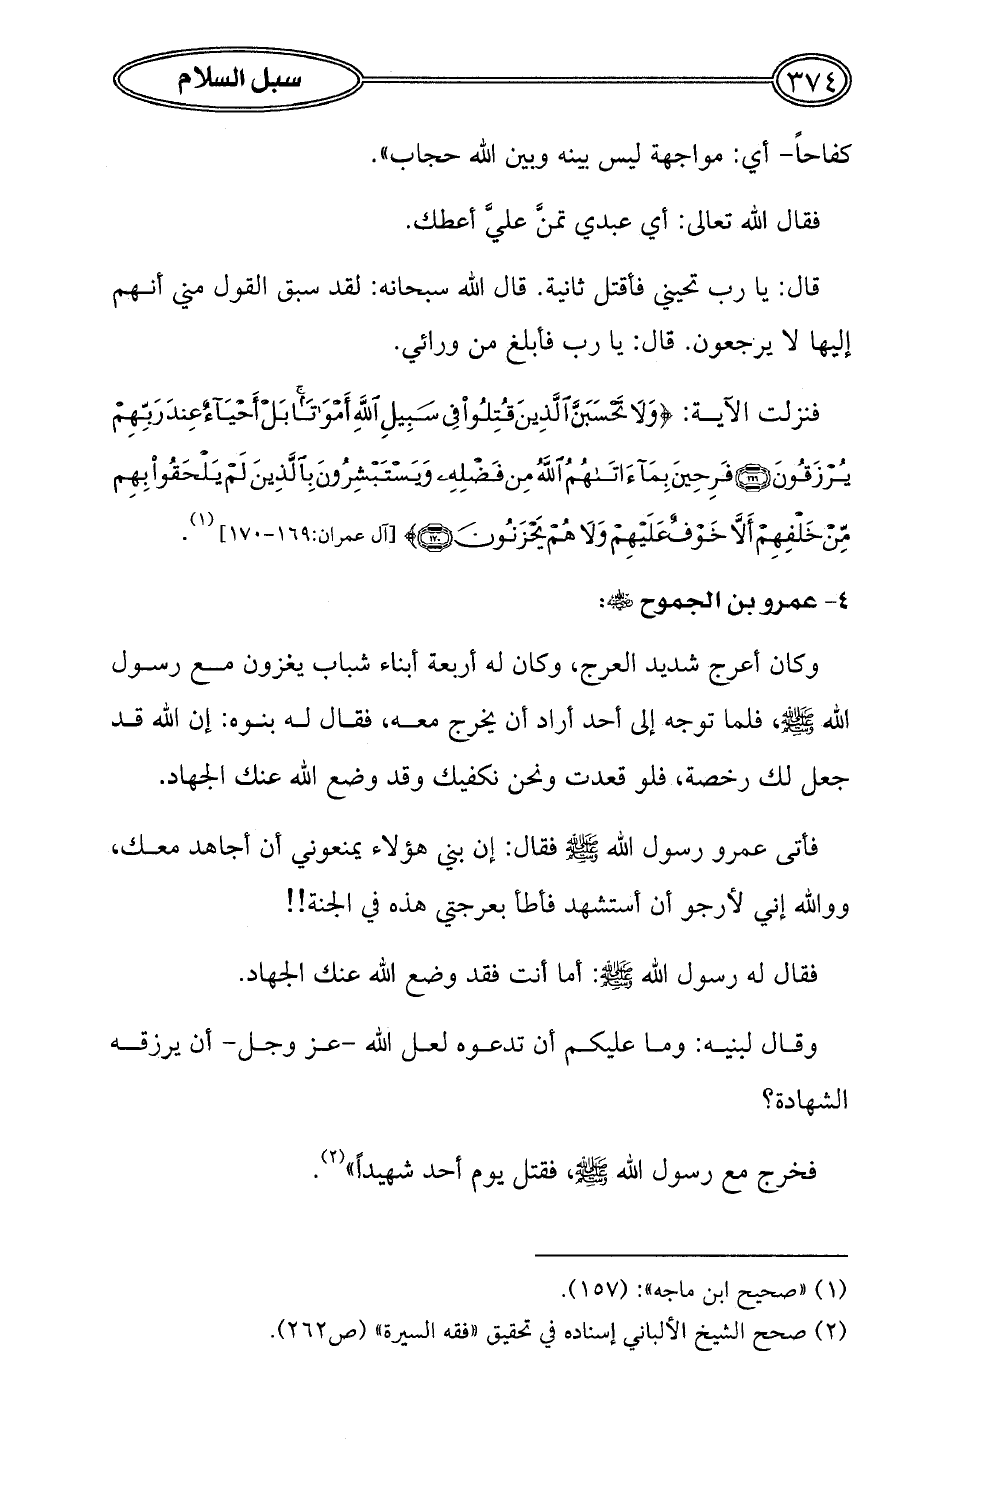 ٣٧٤ سبل السلام
كفاحاً- أي: مواجهة ليس بينه وبين الله حجاب».
فقال الله تعالى: أي عبدي تمنَّ عليَّ أعطك.
قال: يا رب تحيني فأقتل ثانية. قال الله سبحانه: لقد سبق القول مني أنهم
إليها لا يرجعون. قال: يا رب فأبلغ من ورائي.
فنزلت الآية: ﴿وَلَا تَحْسَبَنَّ ٱلَّذِينَ قُتِلُوا۟ فِى سَبِيلِ ٱللَّهِ أَمْوَٰتًۢا ۚ بَلْ أَحْيَآءٌ عِندَ رَبِّهِمْ
يُرْزَقُونَ ۝١٦٩ فَرِحِينَ بِمَآ ءَاتَىٰهُمُ ٱللَّهُ مِن فَضْلِهِۦ وَيَسْتَبْشِرُونَ بِٱلَّذِينَ لَمْ يَلْحَقُوا۟ بِهِم
مِّنْ خَلْفِهِمْ أَلَّا خَوْفٌ عَلَيْهِمْ وَلَا هُمْ يَحْزَنُونَ ۝١٧٠﴾ [آل عمران:١٦٩-١٧٠](١).
٤- عمرو بن الجموح رضي الله عنه:
وكان أعرج شديد العرج، وكان له أربعة أبناء شباب يغزون مع رسول
الله ﷺ، فلما توجه إلى أحد أراد أن يخرج معه، فقال له بنوه: إن الله قد
جعل لك رخصة، فلو قعدت ونحن نكفيك وقد وضع الله عنك الجهاد.
فأتى عمرو رسول الله ﷺ فقال: إن بني هؤلاء يمنعوني أن أجاهد معك،
ووالله إني لأرجو أن أستشهد فأطأ بعرجتي هذه في الجنة!!
فقال له رسول الله ﷺ: أما أنت فقد وضع الله عنك الجهاد.
وقال لبنيه: وما عليكم أن تدعوه لعل الله -عز وجل- أن يرزقه
الشهادة؟
فخرج مع رسول الله ﷺ، فقتل يوم أحد شهيداً»(٢).
(١) «صحيح ابن ماجه»: (١٥٧).
(٢) صحح الشيخ الألباني إسناده في تحقيق «فقه السيرة» (ص٢٦٢).